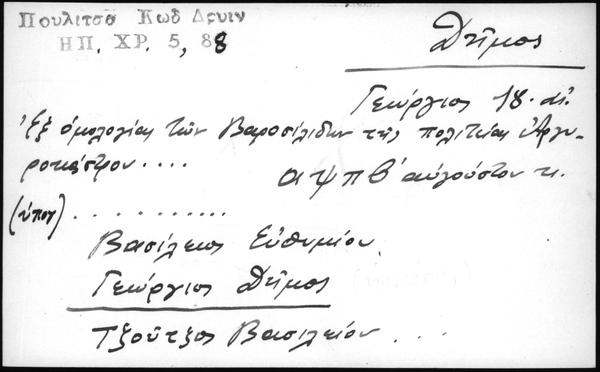 Πουλιτσα Κωδ Δρυιν
ΗΠ. ΧΡ. 5, 88
Δῆμος
Γεώργιος 18. αἰ.
Ἐξ ὁμολογίας τῶν Βαροσιλίδων τῆς πολιτείας Ἀργυ-
ροκάστρου....
αψπβ΄ αὐγούστου κ.
(ὑπογ) ...........
Βασίλειος Εὐθυμίου
Γεώργιος Δῆμος
Τζούτζος Βασιλείου ...